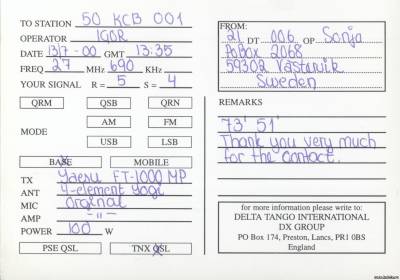 TO STATION 50 KCB 001
OPERATOR IGOR
DATE 13/7-00 GMT 13:35
FREQ 27 MHz 690 KHz
YOUR SIGNAL R= 5 S= 4
QRM QSB QRN
MODE
AM FM
USB LSB
BASE MOBILE
TX Yaesu FT-1000 MP
ANT 4-element yagi
MIC Orginal
AMP -"-
POWER 100 W
PSE QSL TNX QSL
FROM:
21 DT 006 OP Sonja
PoBox 2068
59302 Västervik
Sweden
REMARKS
73' 51'
Thank you very much
for the contact.
for more information please write to:
DELTA TANGO INTERNATIONAL
DX GROUP
PO Box 174, Preston, Lancs, PR1 0BS
England